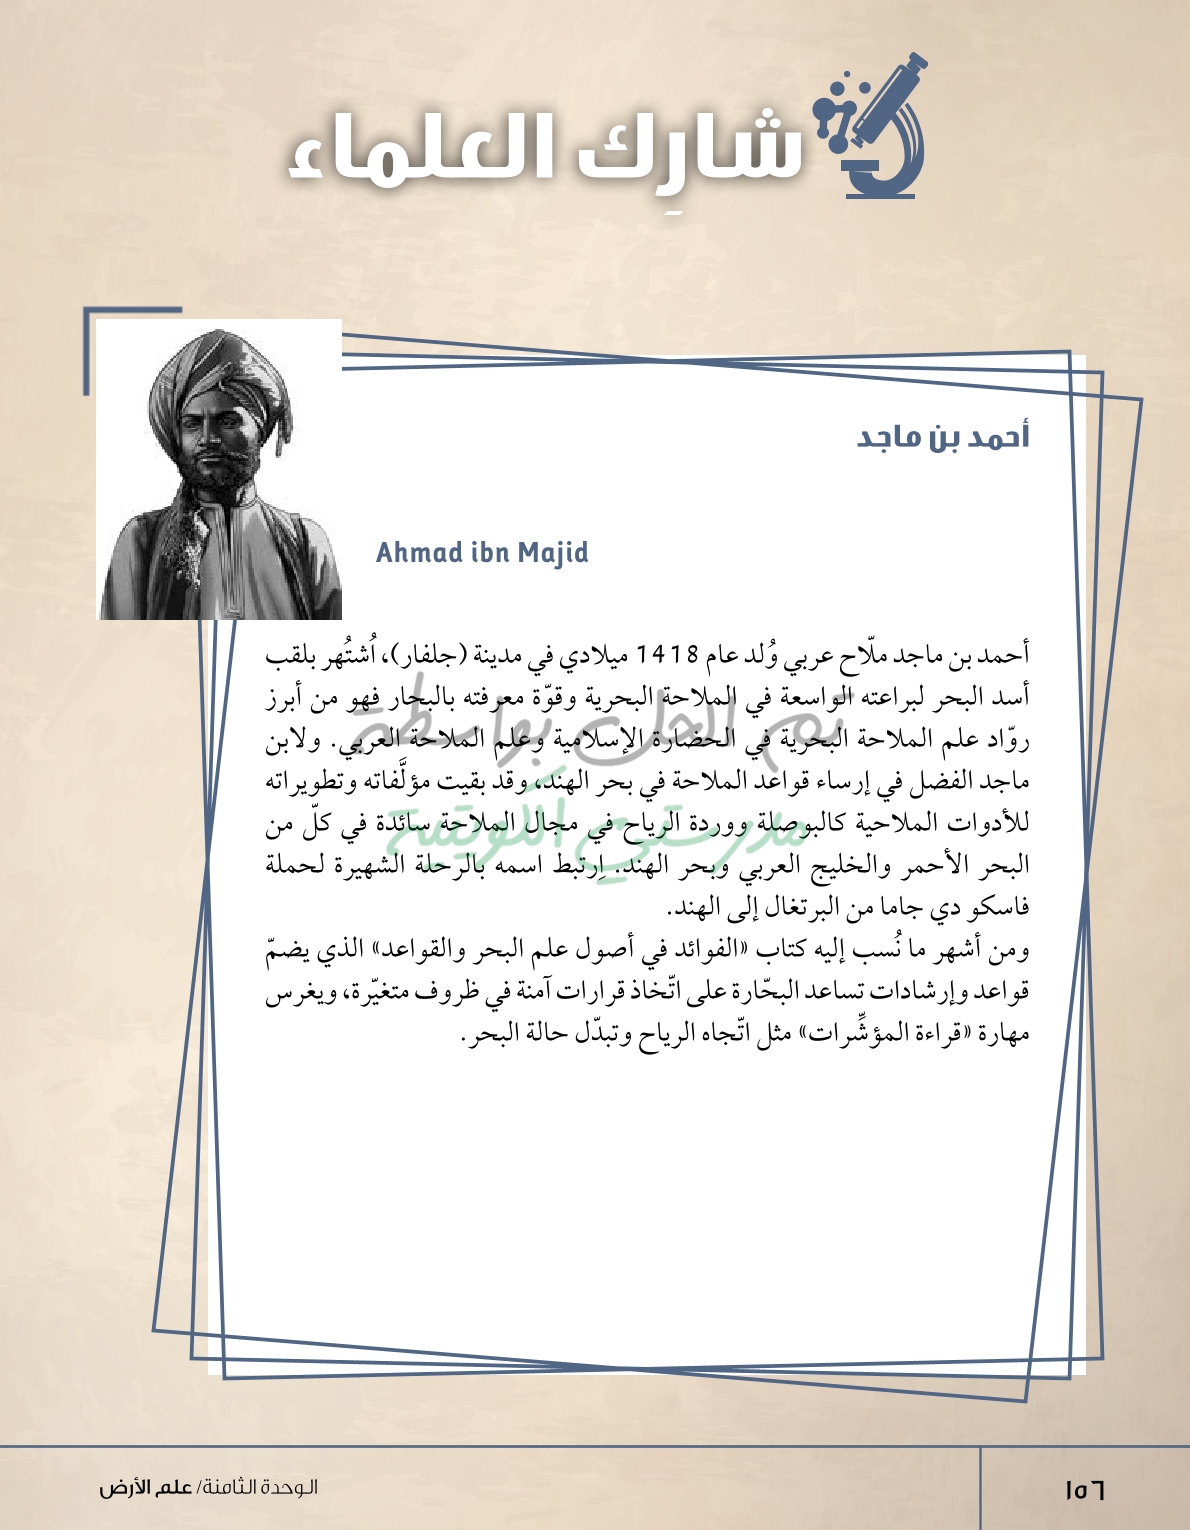 شارِك العلماء
أحمد بن ماجد
Ahmad ibn Majid
أحمد بن ماجد ملّاح عربي وُلد عام 1418 ميلادي في مدينة (جلفار)، اُشتُهر بلقب
أسد البحر لبراعته الواسعة في الملاحة البحرية وقوّة معرفته بالبحار فهو من أبرز
روّاد علم الملاحة البحرية في الحضارة الإسلامية وعلم الملاحة العربي. ولابن
ماجد الفضل في إرساء قواعد الملاحة في بحر الهند، وقد بقيت مؤلَّفاته وتطويراته
للأدوات الملاحية كالبوصلة ووردة الرياح في مجال الملاحة سائدة في كلّ من
البحر الأحمر والخليج العربي وبحر الهند. اِرتبط اسمه بالرحلة الشهيرة لحملة
فاسكو دي جاما من البرتغال إلى الهند.
ومن أشهر ما نُسب إليه كتاب «الفوائد في أصول علم البحر والقواعد» الذي يضمّ
قواعد وإرشادات تساعد البحّارة على اتّخاذ قرارات آمنة في ظروف متغيّرة، ويغرس
مهارة «قراءة المؤشِّرات» مثل اتّجاه الرياح وتبدّل حالة البحر.
تم الحل بواسطة
مدرستي الكويتية
١٥٦
الوحدة الثامنة/ علم الأرض